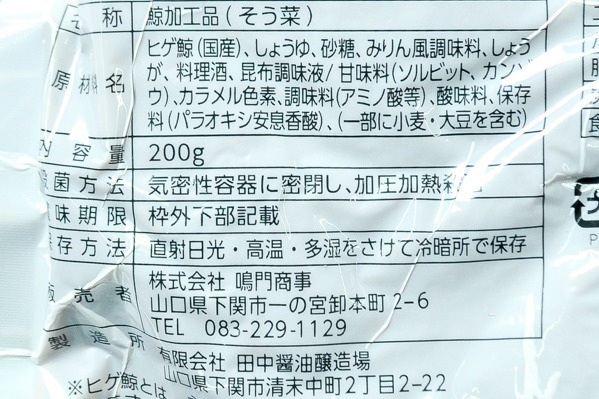 名 称 鯨加工品(そう菜)
原材料名 ヒゲ鯨(国産)、しょうゆ、砂糖、みりん風調味料、しょう
が、料理酒、昆布調味液/甘味料(ソルビット、カンゾ
ウ)、カラメル色素、調味料(アミノ酸等)、酸味料、保存
料(パラオキシ安息香酸)、(一部に小麦・大豆を含む)
内容量 200g
殺菌方法 気密性容器に密閉し、加圧加熱殺菌
賞味期限 枠外下部記載
保存方法 直射日光・高温・多湿をさけて冷暗所で保存
販売者 株式会社 鳴門商事
山口県下関市一の宮卸本町2-6
TEL 083-229-1129
製造所 有限会社 田中醤油醸造場
山口県下関市清末中町2丁目2-22
※ヒゲ鯨とは